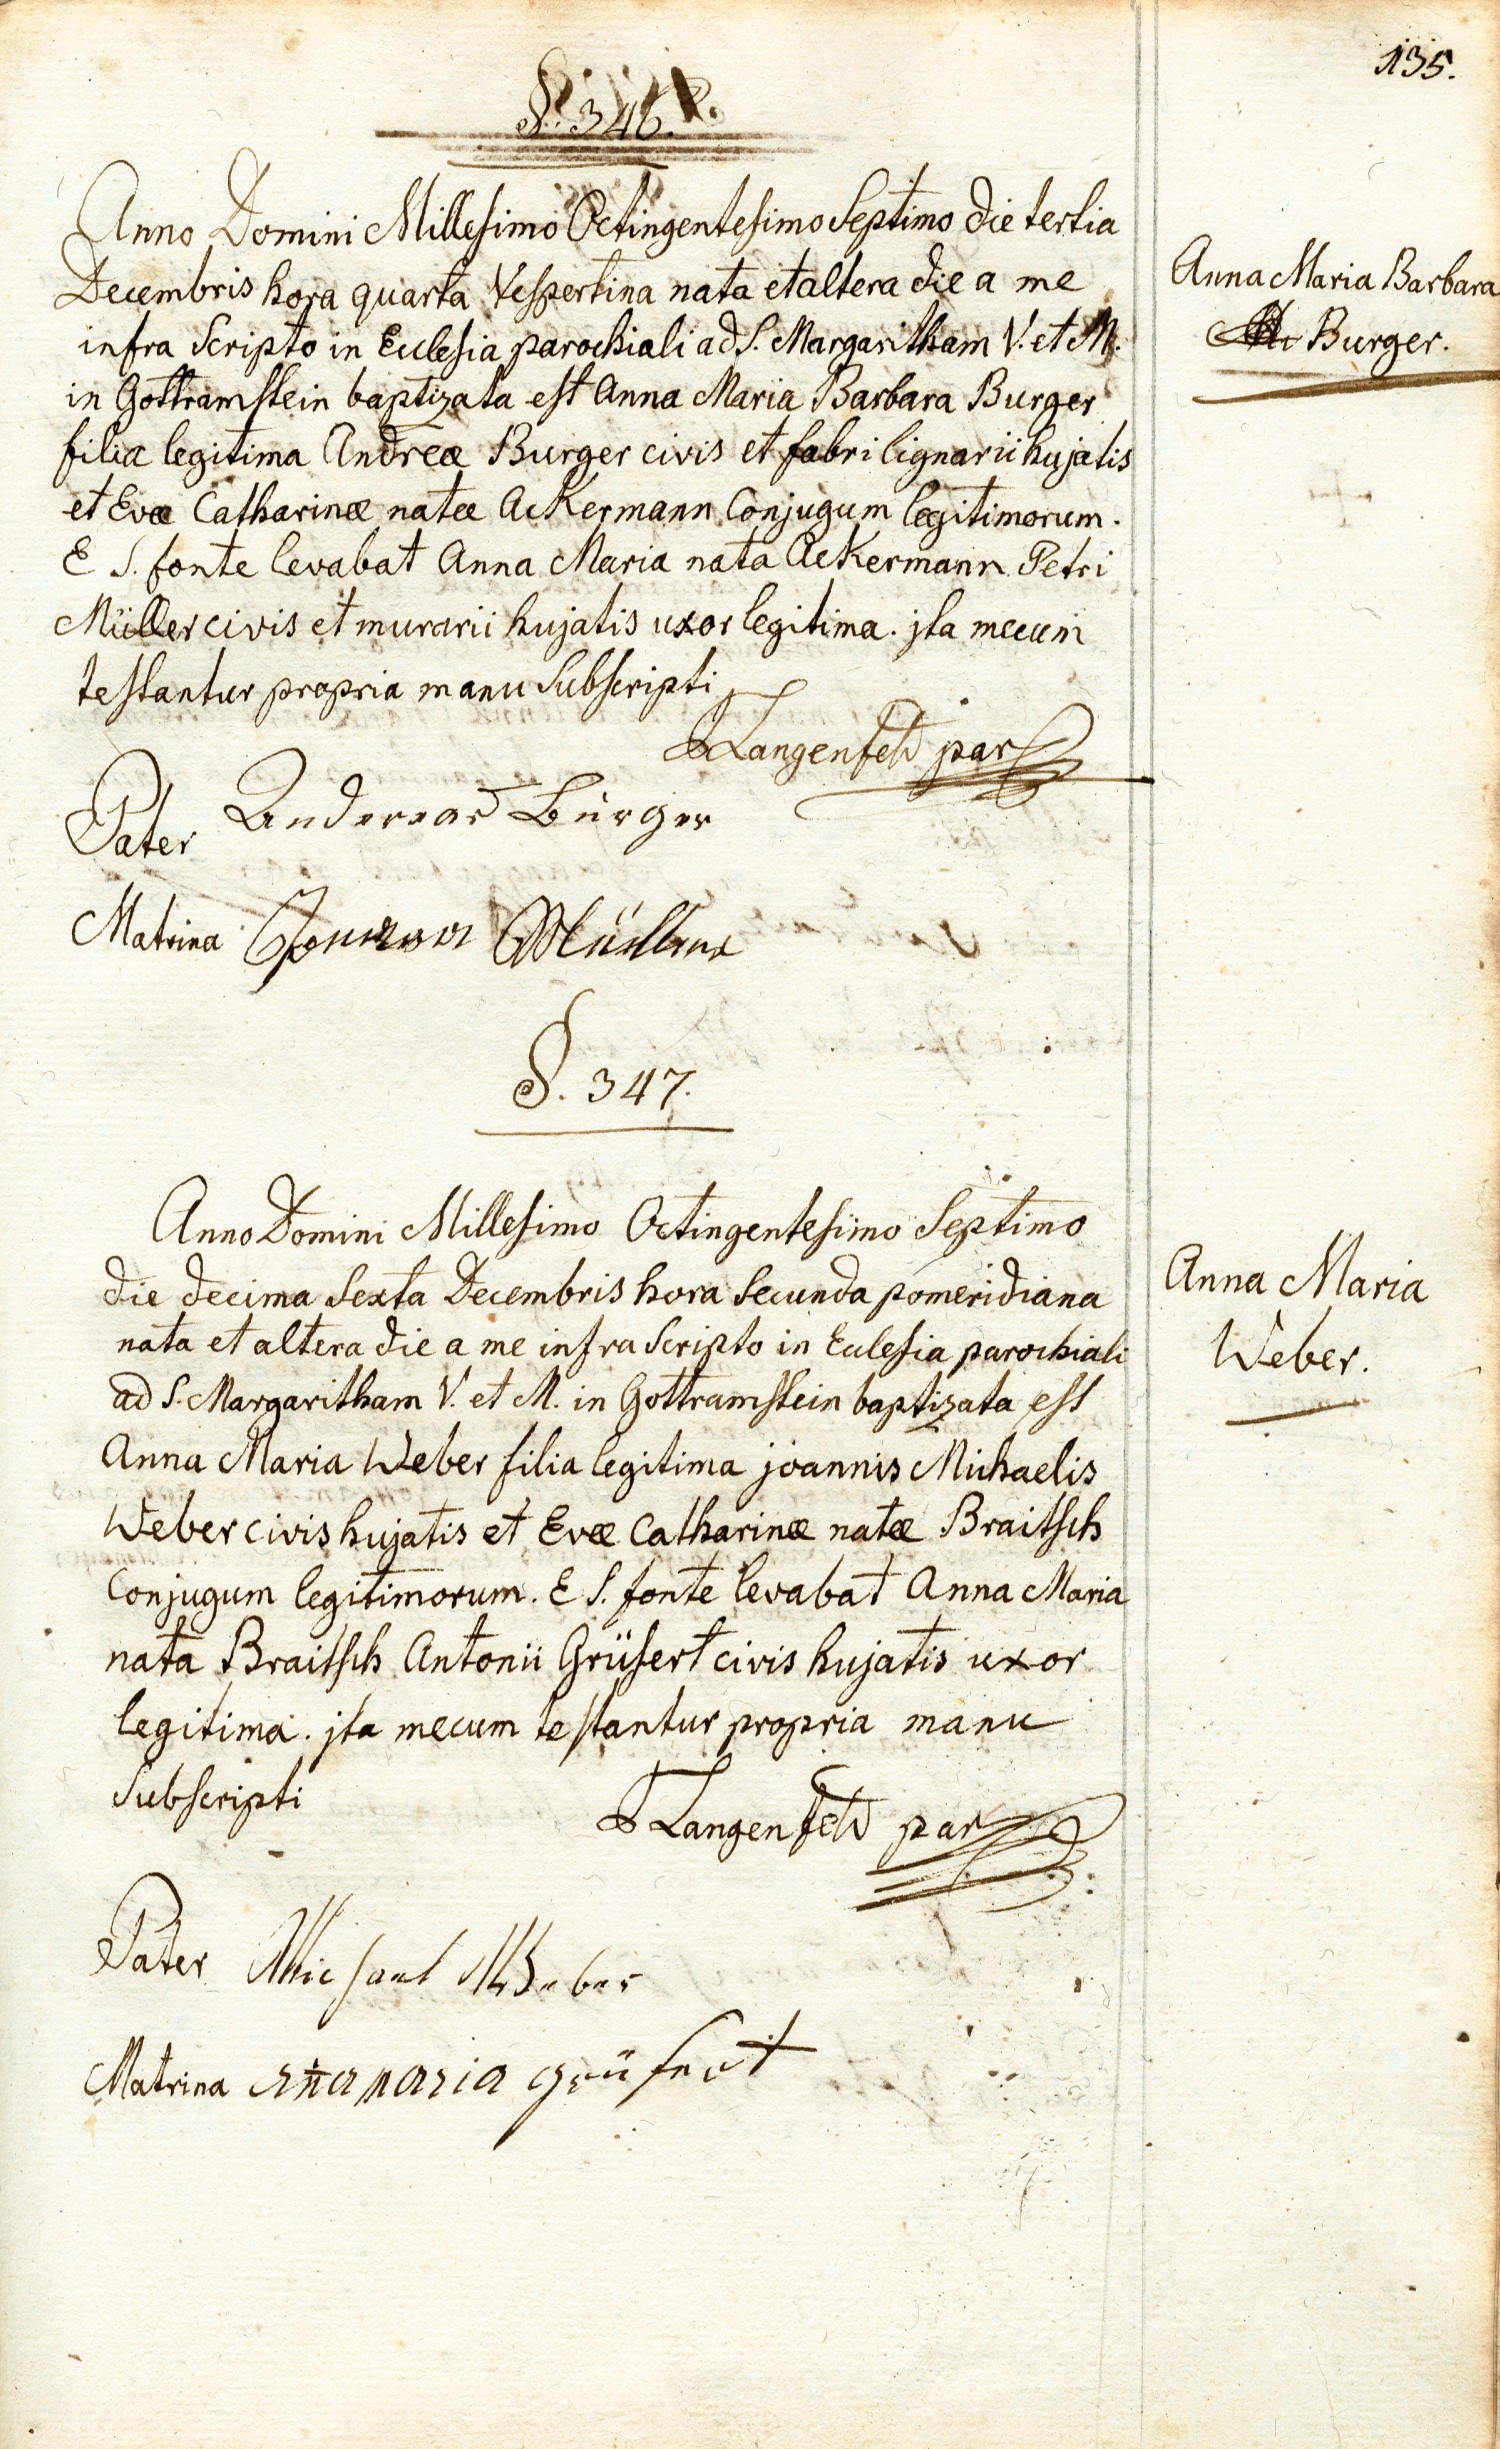 135.
§. 346.
Anno Domini Millesimo Octingentesimo Septimo die tertia
Decembris hora quarta Vespertina nata et altera die a me
infra Scripto in Ecclesia parochiali ad S. Margaritham V. et M.
in Gottramstein baptizata est Anna Maria Barbara Burger
filia legitima Andreæ Burger civis et fabri lignarii hujatis
et Evæ Catharinæ natæ Ackermann Conjugum legitimorum.
E S. fonte levabat Anna Maria nata Ackermann Petri
Müller civis et murarii hujatis uxor legitima. jta mecum
testantur propria manu Subscripti
Langenfeld par
Pater Andereas Burger
Matrina Müllerin
Anna Maria Barbara
Burger.
§. 347.
Anno Domini Millesimo Octingentesimo Septimo
die decima Sexta Decembris hora Secunda pomeridiana
nata et altera die a me infra Scripto in Eclesia parochiali
ad S. Margaritham V. et M. in Gottramstein baptizata est
Anna Maria Weber filia legitima joannis Michaelis
Weber civis hujatis et Evæ Catharinæ natæ Braitsch
Conjugum legitimorum. E S. fonte levabat Anna Maria
nata Braitsch Antonii Grüsert civis hujatis uxor
legitima. jta mecum testantur propria manu
Subscripti
Langenfeld par
Pater Michael Weber
Matrina anamaria grüsert
Anna Maria
Weber.